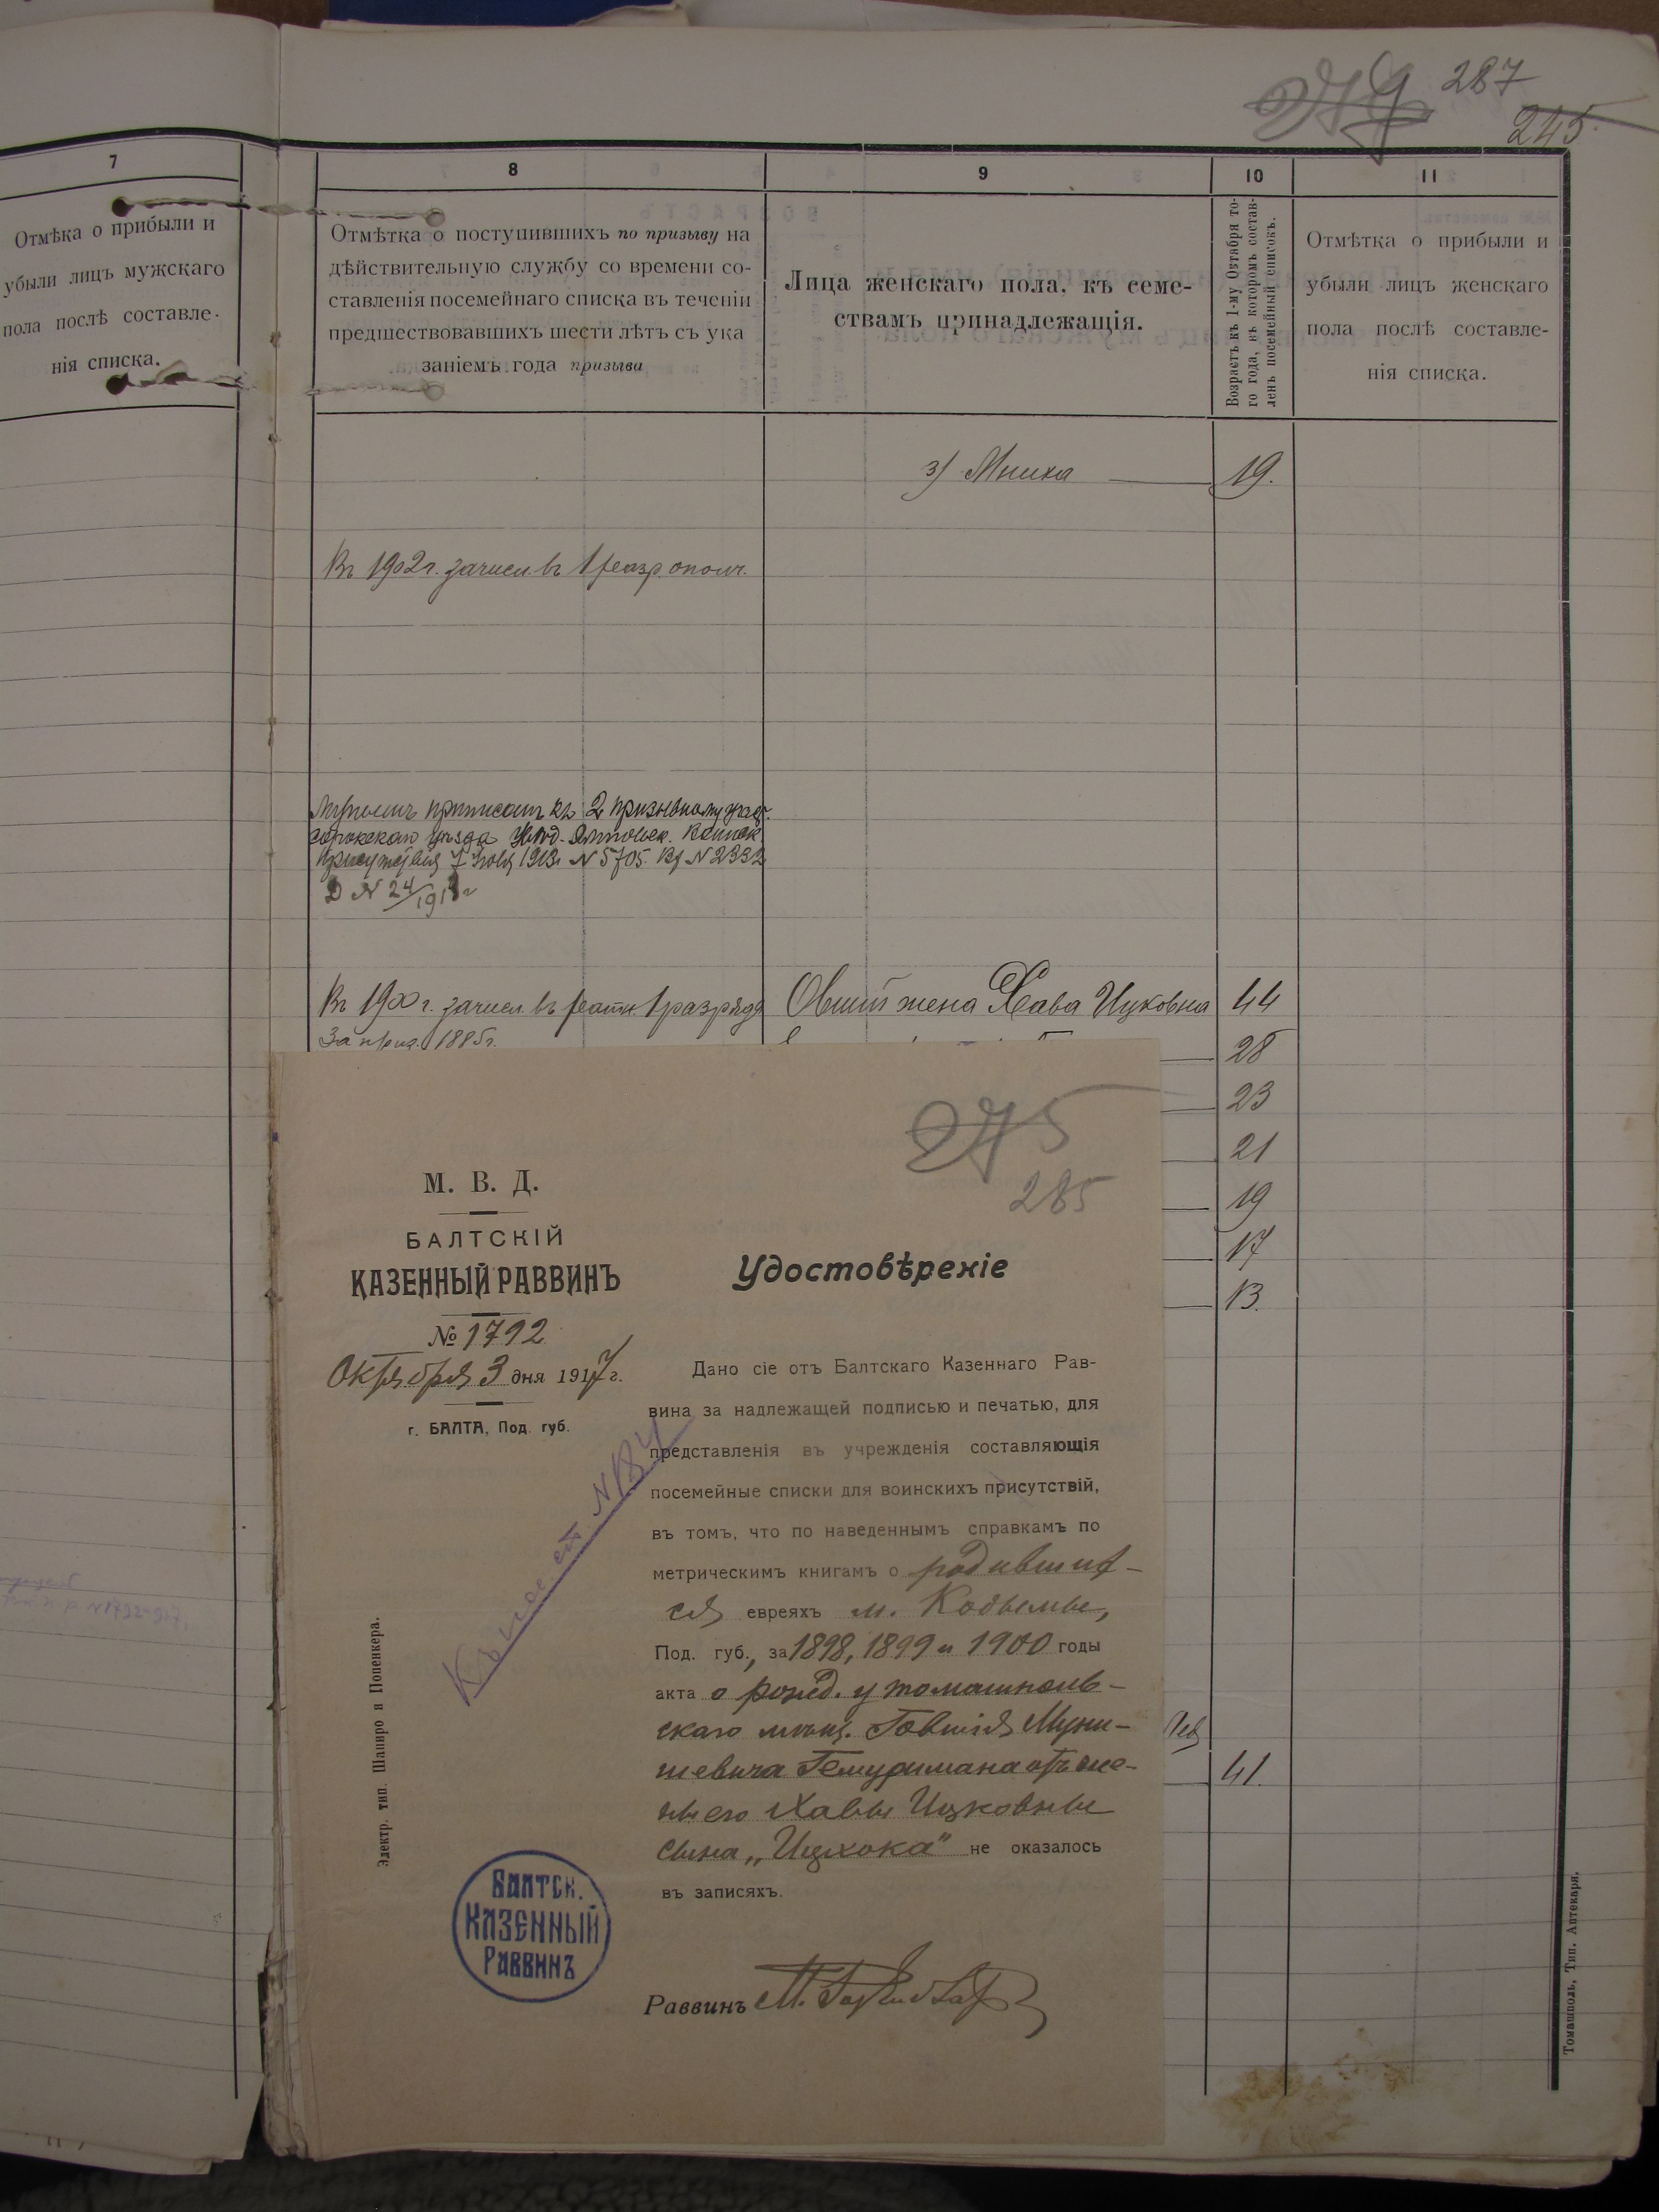 287
245
7
Отмѣка о прибыли и
убыли лицъ мужскаго
пола послѣ составле-
нія списка.
8
Отмѣтка о поступившихъ по призыву на
дѣйствительную службу со времени со-
ставленія посемейнаго списка въ теченіи
предшествовавшихъ шести лѣтъ съ ука
заніемъ года призыва
9
Лица женскаго пола, къ семе-
ствамъ принадлежащія.
10
Возрастъ къ 1-му Октября то-
го года, въ которомъ состав-
ленъ посемейный списокъ.
11
Отмѣтка о прибыли и
убыли лицъ женскаго
пола послѣ составле-
нія списка.
3) Мниха 19.
Въ 1902 г. зачисл. въ 1 разр. ополч.
приписанъ къ 2 призывному
уѣзда
7 1913 г. № 5705. № 2332
Д № 24/
Въ 1900 г. зачисл. въ ратн. 1 разряда
За приз. 1885 г.
Овшія жена Хава Ицковна 44
28
23
21
19
17
13.
41.
275
285
М. В. Д.
БАЛТСКІЙ
КАЗЕННЫЙ РАВВИНЪ
№ 1792
Октября 3 дня 1917 г.
г. БАЛТА, Под. губ.
Удостовѣреніе
Дано сіе отъ Балтскаго Казеннаго Рав-
вина за надлежащей подписью и печатью, для
представленія въ учрежденія составляющія
посемейные списки для воинскихъ присутствій,
въ томъ, что по наведеннымъ справкамъ по
метрическимъ книгамъ о родивших-
ся евреяхъ м. Кодымы,
Под. губ., за 1898, 1899 и 1900 годы
акта о рожд. у томашполь-
скаго мѣщ. Говшія Муни-
шевича отъ же-
ны его Хавы Ицковны
сына „Ицхока" не оказалось
въ записяхъ.
Раввинъ
БАЛТСК.
КАЗЕННЫЙ
РАВВИНЪ
Электр. тип. Шапиро и Попенкера.
Томашполь, Тип. Аптекаря.